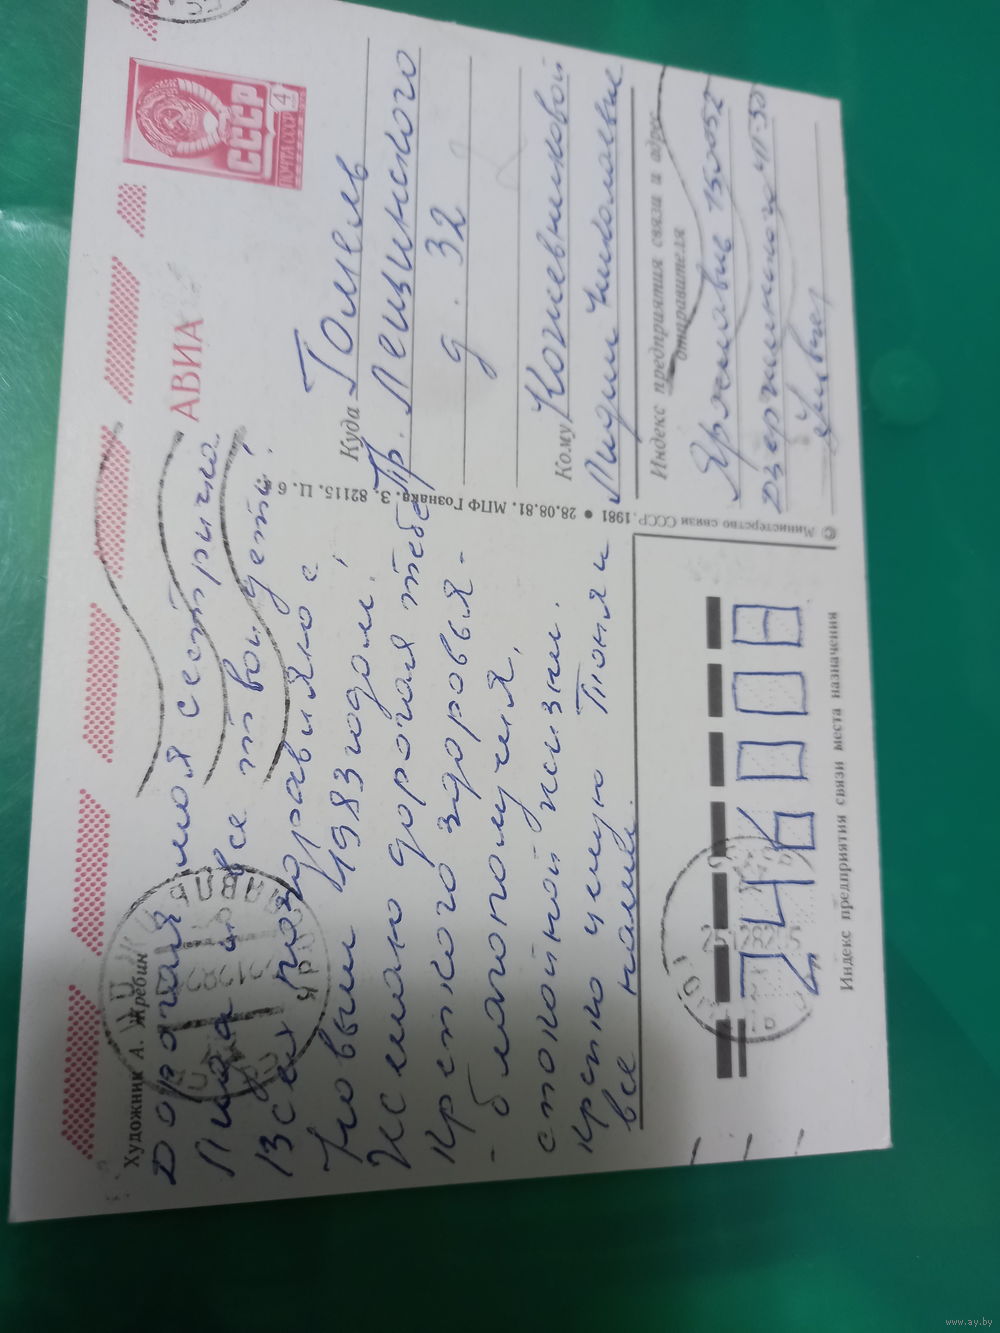 Художник А. Жребин
АВИА
ПОЧТА СССР
4
СССР
Дорогая моя сестричка
Лида и все твои дети!
Всех поздравляю с
Новым 1983 годом!
Желаю дорогая тебе
крепкого здоровья-
- благополучия,
спокойной жизни.
крепко целую Тоня и
все наши.
Куда Гомель
Пр. Лещинского
д. 32
Кому Кожевниковой
Лидии Николаевне
Индекс предприятия связи и адрес
отправителя
Ярославль 150052
Дзержинского
© Министерство связи СССР. 1981 ● 28.08.81. МПФ Гознака. З. 82115. Ц. 6
246008
Индекс предприятия связи места назначения
www.ay.by